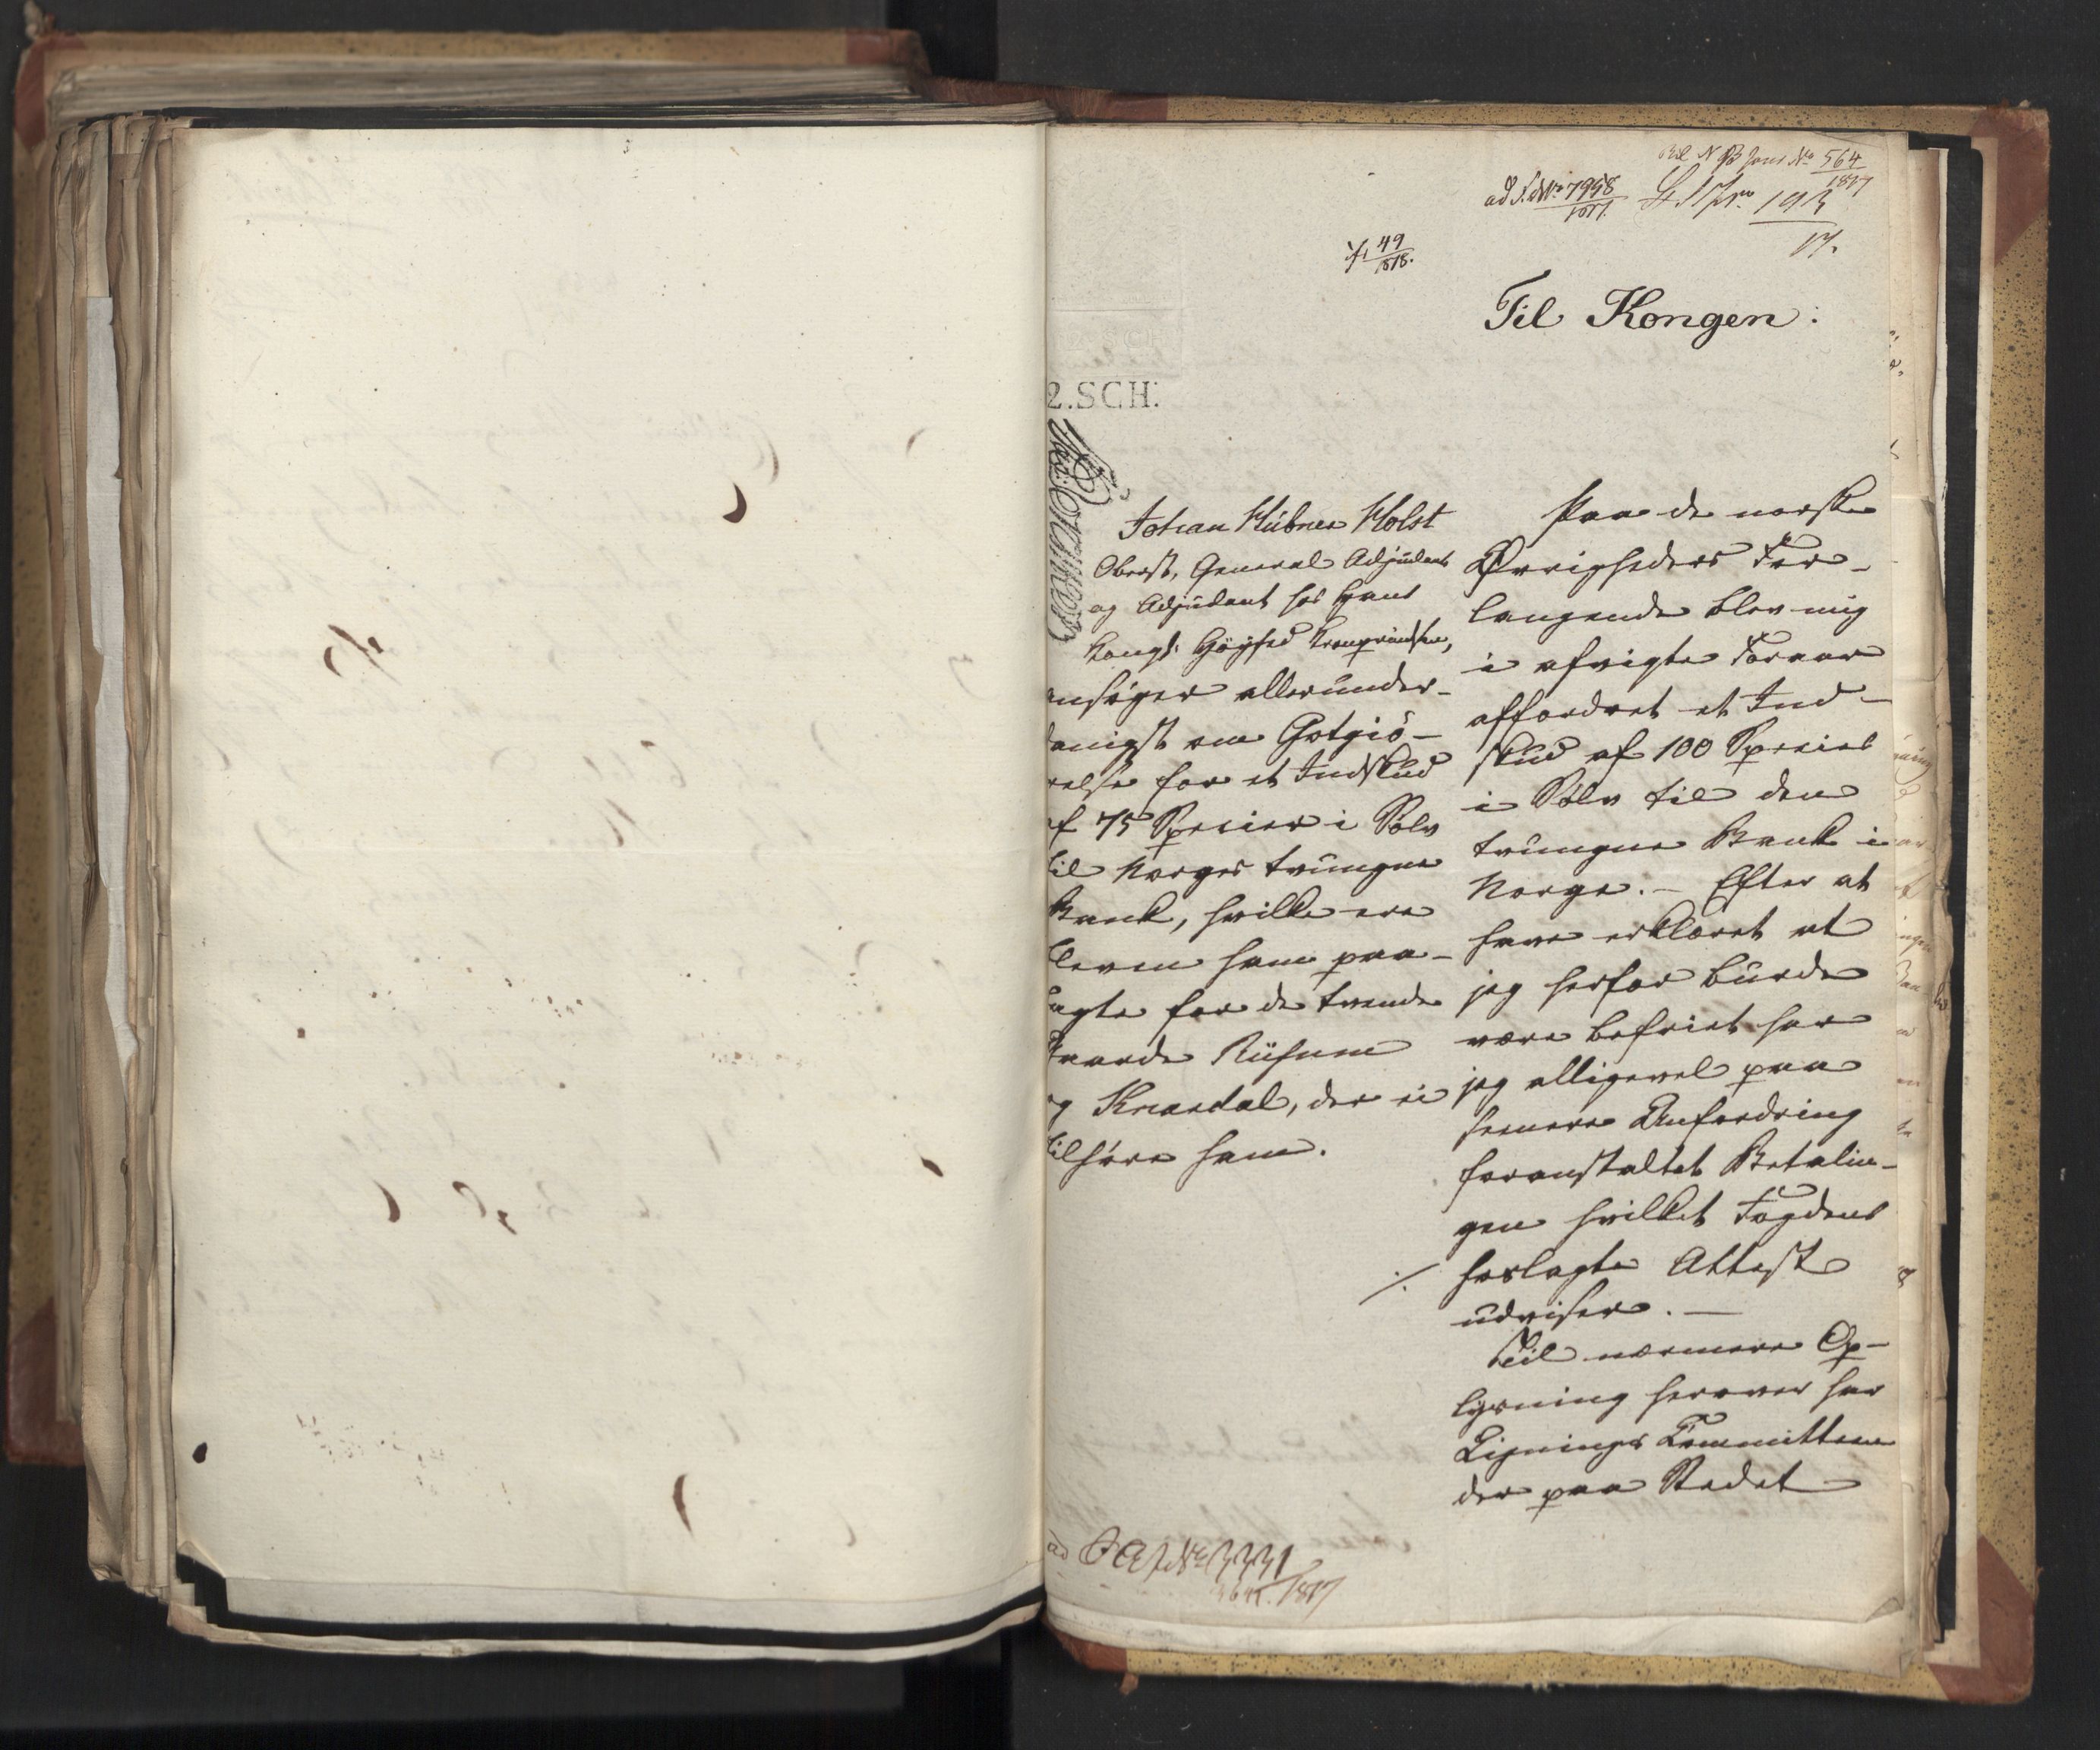 Bil N B Jour No 564/1817
ad S. No 7958/1817.
193
17.
49/1818.
Til Kongen:
2.SCH:
Johan Hübner Holst
Oberst, General Adjüdant
og Adjüdant hos Hans
Kongl: Høyhed Kronprindsen,
ansöger alleründer-
danigst om Gotgiö-
relse for et Indskud
af 75 Species i Sölv
til Norges tvüngne
Bank, hvilke ere
blevne ham paa-
lagte for de tvende
Gaarde Riisnæs
og Knardal, der ei
tilhöre ham.
Paa de norske
Øvrigheders For-
langende blev mig
i afvigte Foraar
affordret et Ind-
skud af 100 Species
i Sölv til den
tvüngne Bank i
Norge. - Efter at
have erklæret at
jeg herfor bürde
være befriet har
jeg alligevel paa
senere Anfordring
foranstaltet Betalin-
gen hvilket Fogdens
./. herlagte Attest
udviser. -
Til nærmere Op-
lysning herover har
Lignings Committeen
der paa Stedet
ad No 3331
1817